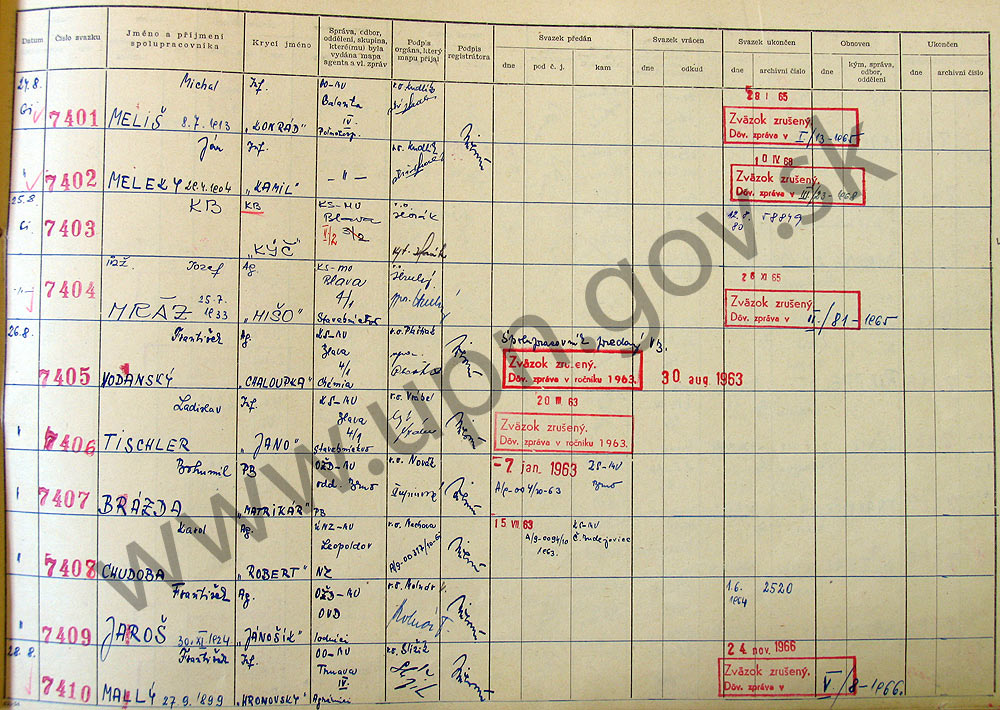 Datum
Číslo svazku
Jméno a příjmení spolupracovníka
Krycí jméno
Správa, odbor, oddělení, skupina, které(mu) byla vydána mapa agenta a vl. zpráv
Podpis orgána, který mapu přijal
Podpis registrátora
Svazek předán
dne
pod č. j.
kam
Svazek vrácen
dne
odkud
Svazek ukončen
dne
archivní číslo
Obnoven
dne
kým, správa, odbor, oddělení
Ukončen
dne
archivní číslo
24.8.
7401
Michal
MELIŠ 8.7.1913
Inf.
„KONRÁD"
OO-MV
Galanta
IV.
28 I 65
Zväzok zrušený.
Dôv. zpráva v I/13-1965
7402
Ján
MELEKY
Inf.
„KAMIL"
- " -
10 IV 68
Zväzok zrušený.
Dôv. zpráva v III/23-1968
25.8
7403
KB
KB
„KÝČ"
KS-MV
Blava
II/2
12.8.
80
58849
7404
Jozef
MRÁZ 25.7.1933
Ag.
„MIŠO"
KS-MV
Blava
4/1
26 XI 65
Zväzok zrušený.
Dôv. zpráva v II./81-1965
26.8.
7405
František
VODANSKÝ
Ag.
„CHALOUPKA"
KS-MV
4/1
Chémia
Spolupracovník predaný VB.
Zväzok zrušený.
Dôv. zpráva v ročníku 1963.
30 aug. 1963
7406
Ladislav
TISCHLER
Inf.
„JANO"
KS-MV
4/1
20 III 63
Zväzok zrušený.
Dôv. zpráva v ročníku 1963.
7407
Bohumil
BRÁZDA
PB
„MATRIKAR"
OŽD-MV
odd. Brno
PB
v.o. Novák
-7 jan. 1963
A/p-004/20-63
Brno
7408
Karol
CHUDOBA
Ag.
„ROBERT"
KNZ-MV
Leopoldov
NZ
15 VII 63
A/g-0094/10
1963.
KS-MV
Č. Budejovice
7409
František
JAROŠ 30.XI.1924
Ag.
„JÁNOŠÍK"
OŽD-MV
OVD
1.6.
1964
2520
28.8.
7410
František
MALLÝ 27.9.1899
Inf.
„HRONOVSKÝ"
OO-MV
Trnava
IV.
24 nov. 1966
Zväzok zrušený.
Dôv. zpráva v V/8-1966.
www.upn.gov.sk